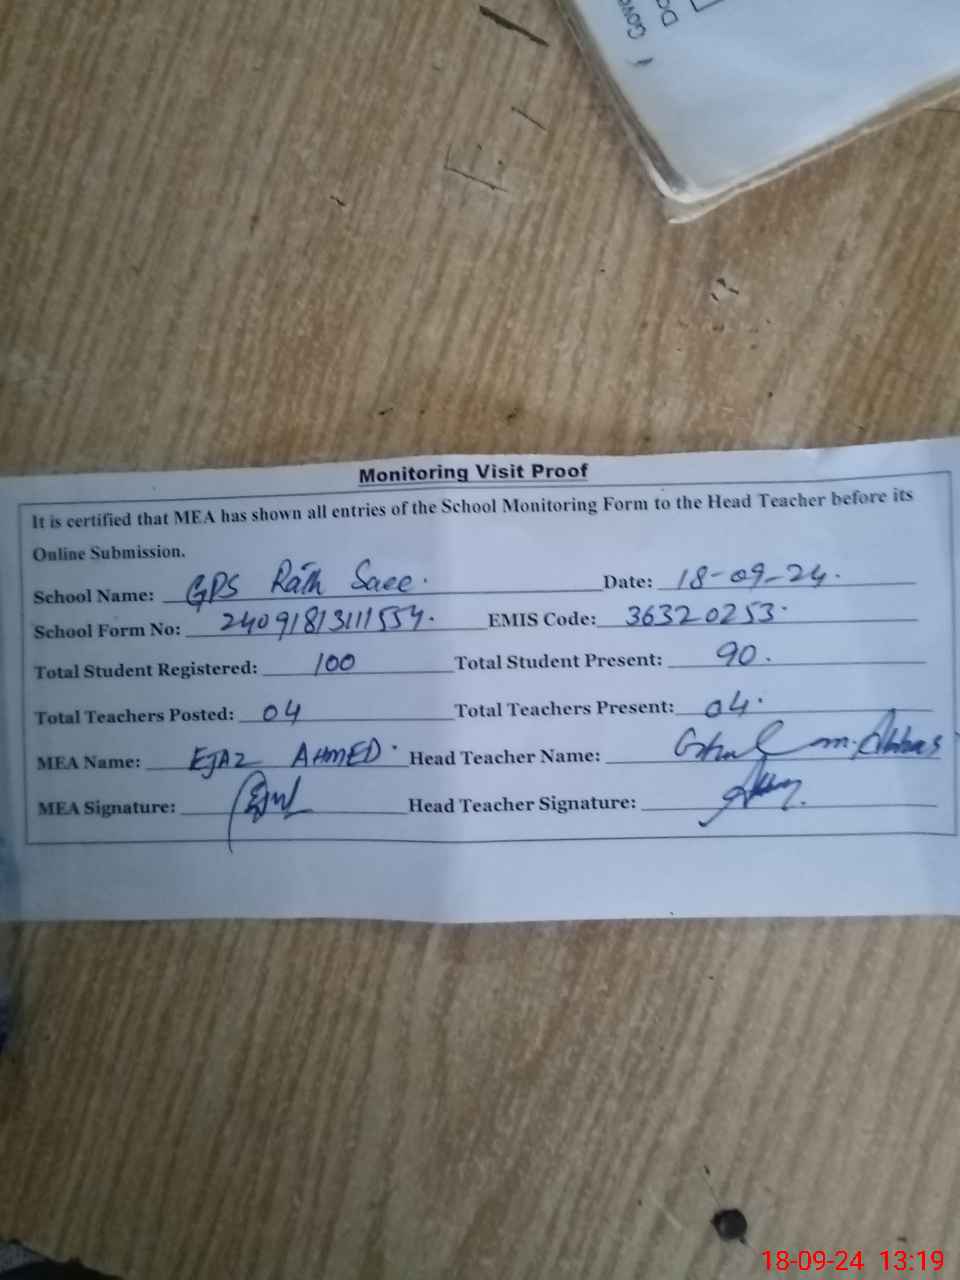 Gove
Da
Monitoring Visit Proof
It is certified that MEA has shown all entries of the School Monitoring Form to the Head Teacher before its
Online Submission.
School Name: GPS Rath Saee. Date: 18-09-24.
School Form No: 24091813111554. EMIS Code: 36320253.
Total Student Registered: 100 Total Student Present: 90.
Total Teachers Posted: 04 Total Teachers Present: 04.
MEA Name: EJAZ AHMED. Head Teacher Name: m. Abbas
MEA Signature: Head Teacher Signature:
18-09-24 13:19